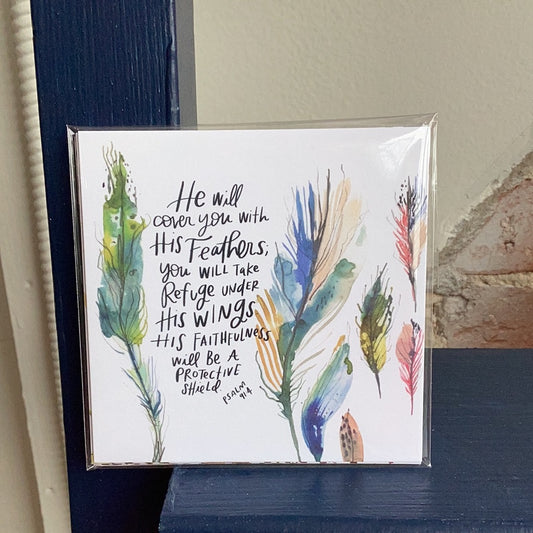 He will
cover you with
His Feathers;
you will take
Refuge under
His wings
His Faithfulness
will be a
protective
shield.
Psalm
91:4